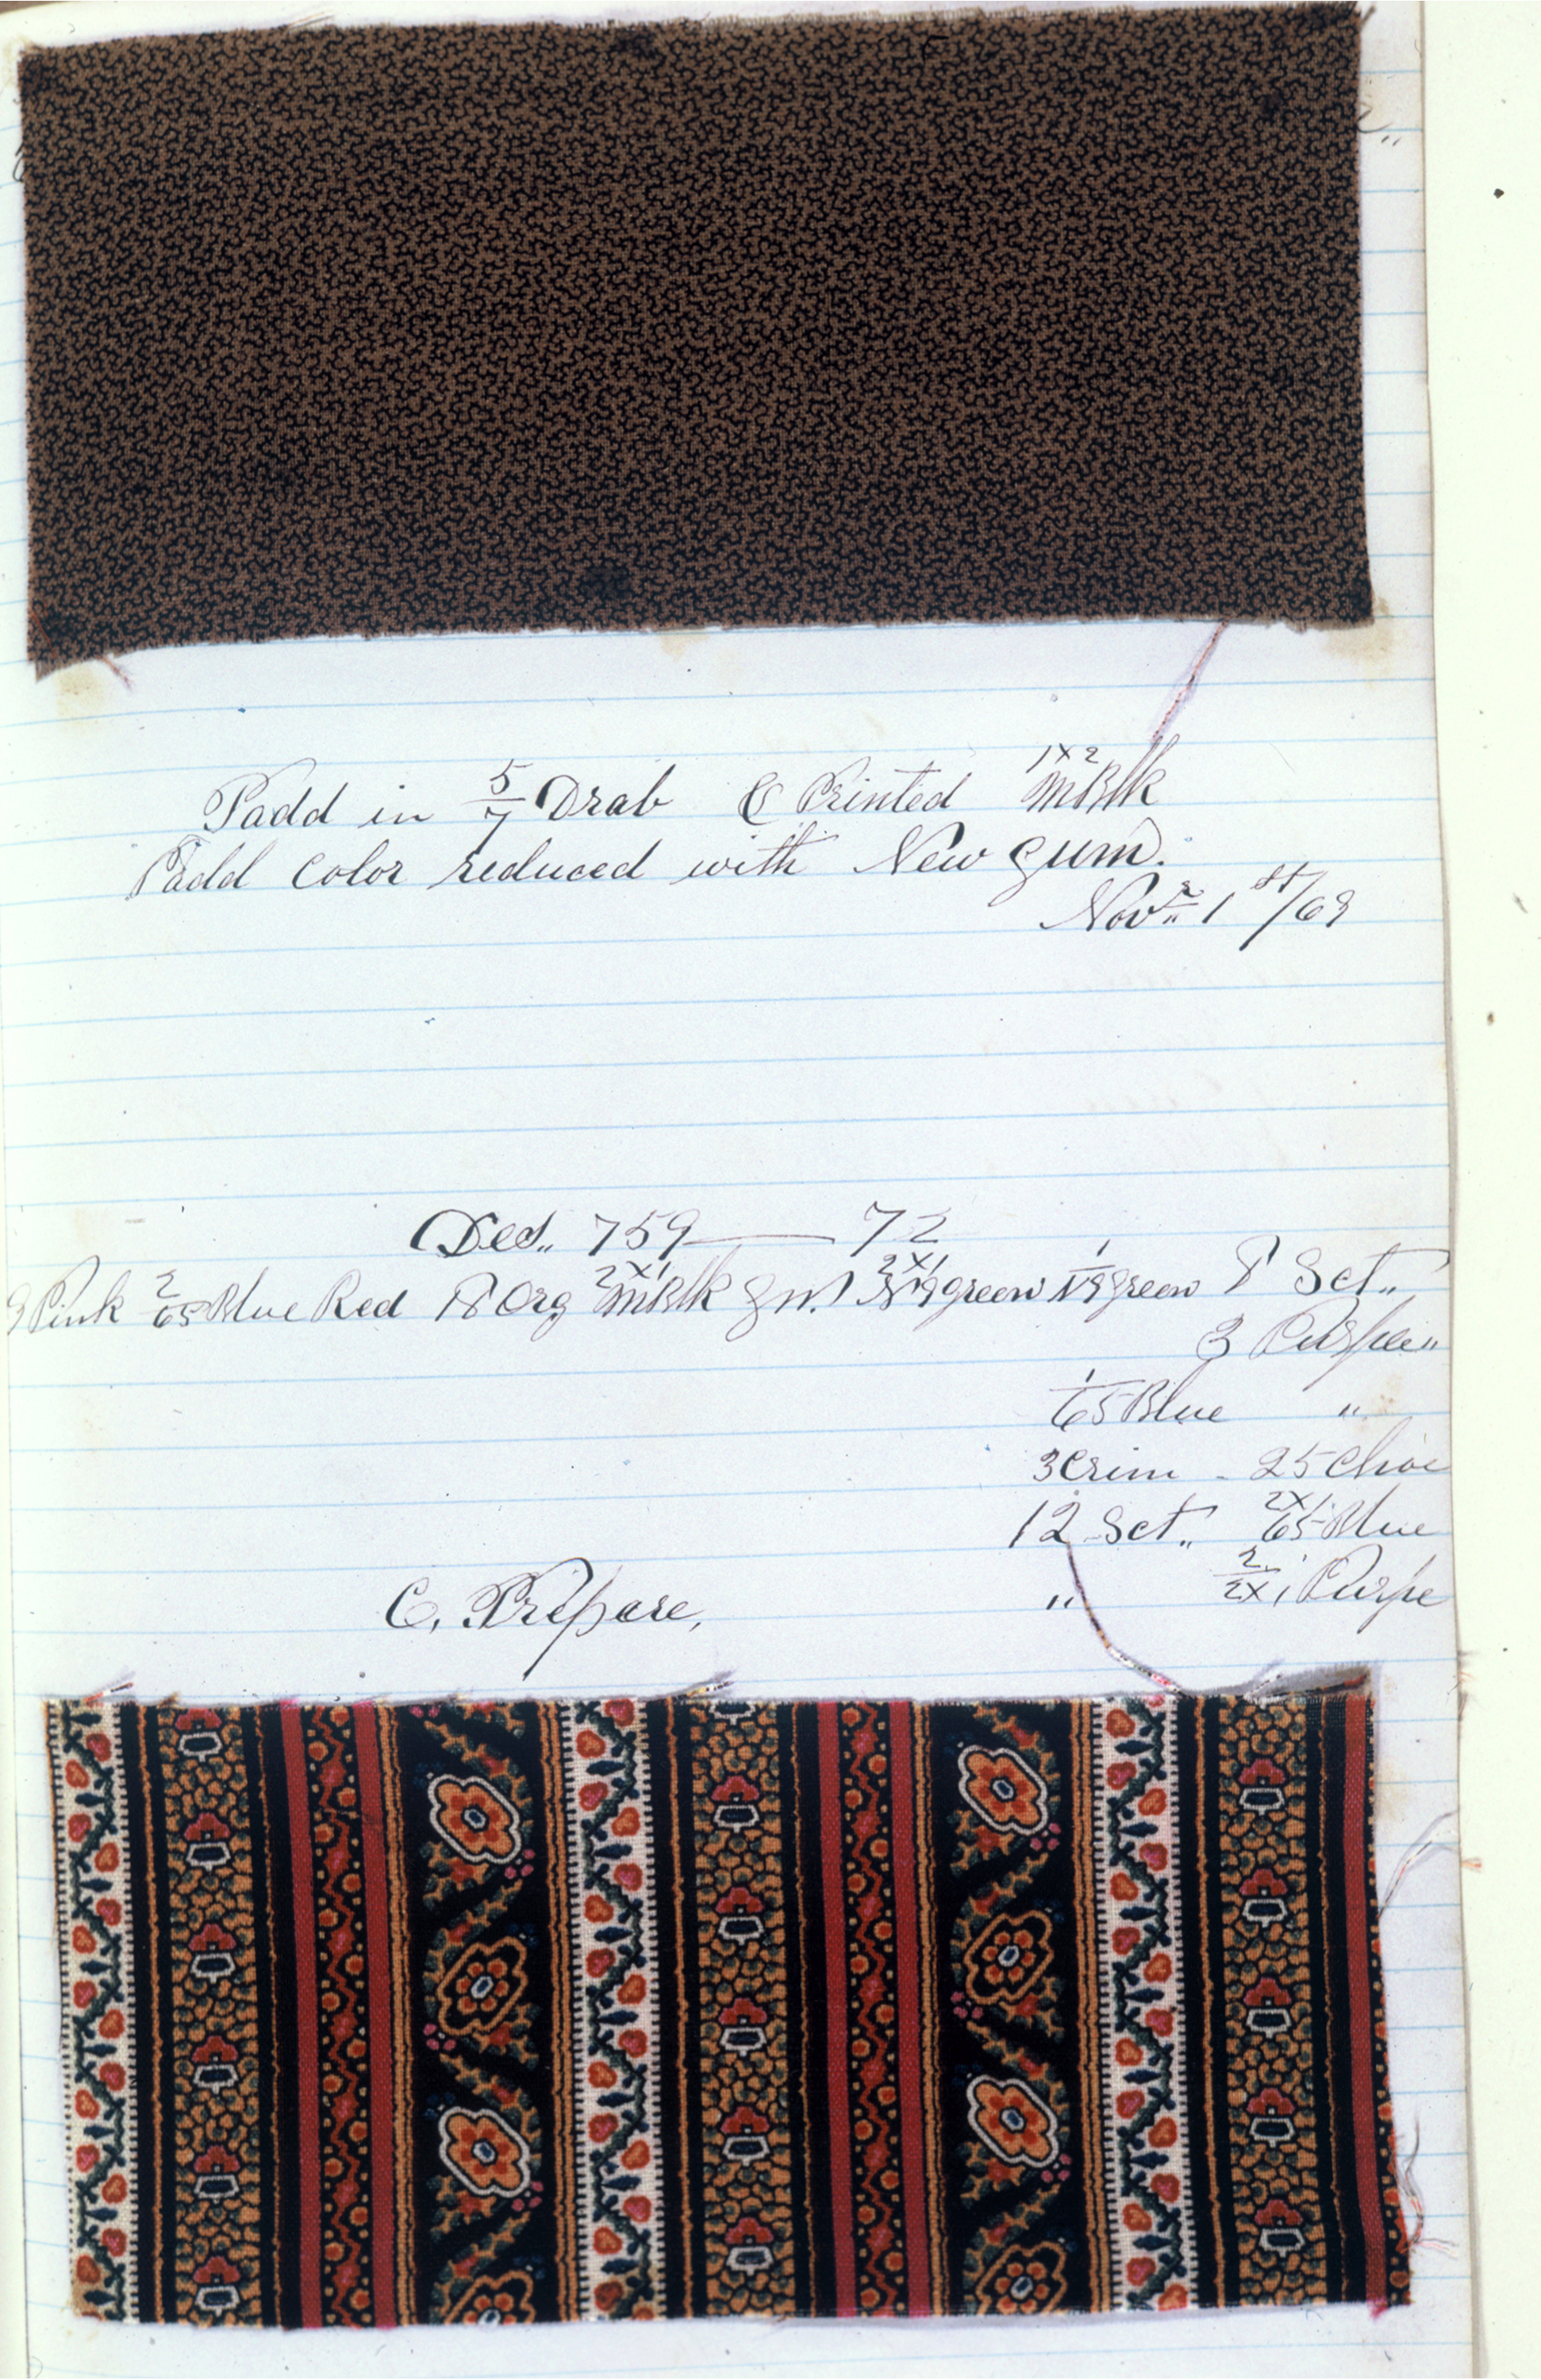 Padd in 5/7 Drab & Printed 1x2 MBlk
Padd Color reduced with New gum.
Nov.. 1st/69
Des.. 759 — 72
9 Pink 2/65 Blue Red 18 Org 2x1 MBlk 2x1 green 1/19 green 8 Set..
3 Purple "
1/65 Blue "
3 Crim - 25 Choc
12 Set.. 2x1 65 Blue
" 2/2x1 Purple
C. Prepare,